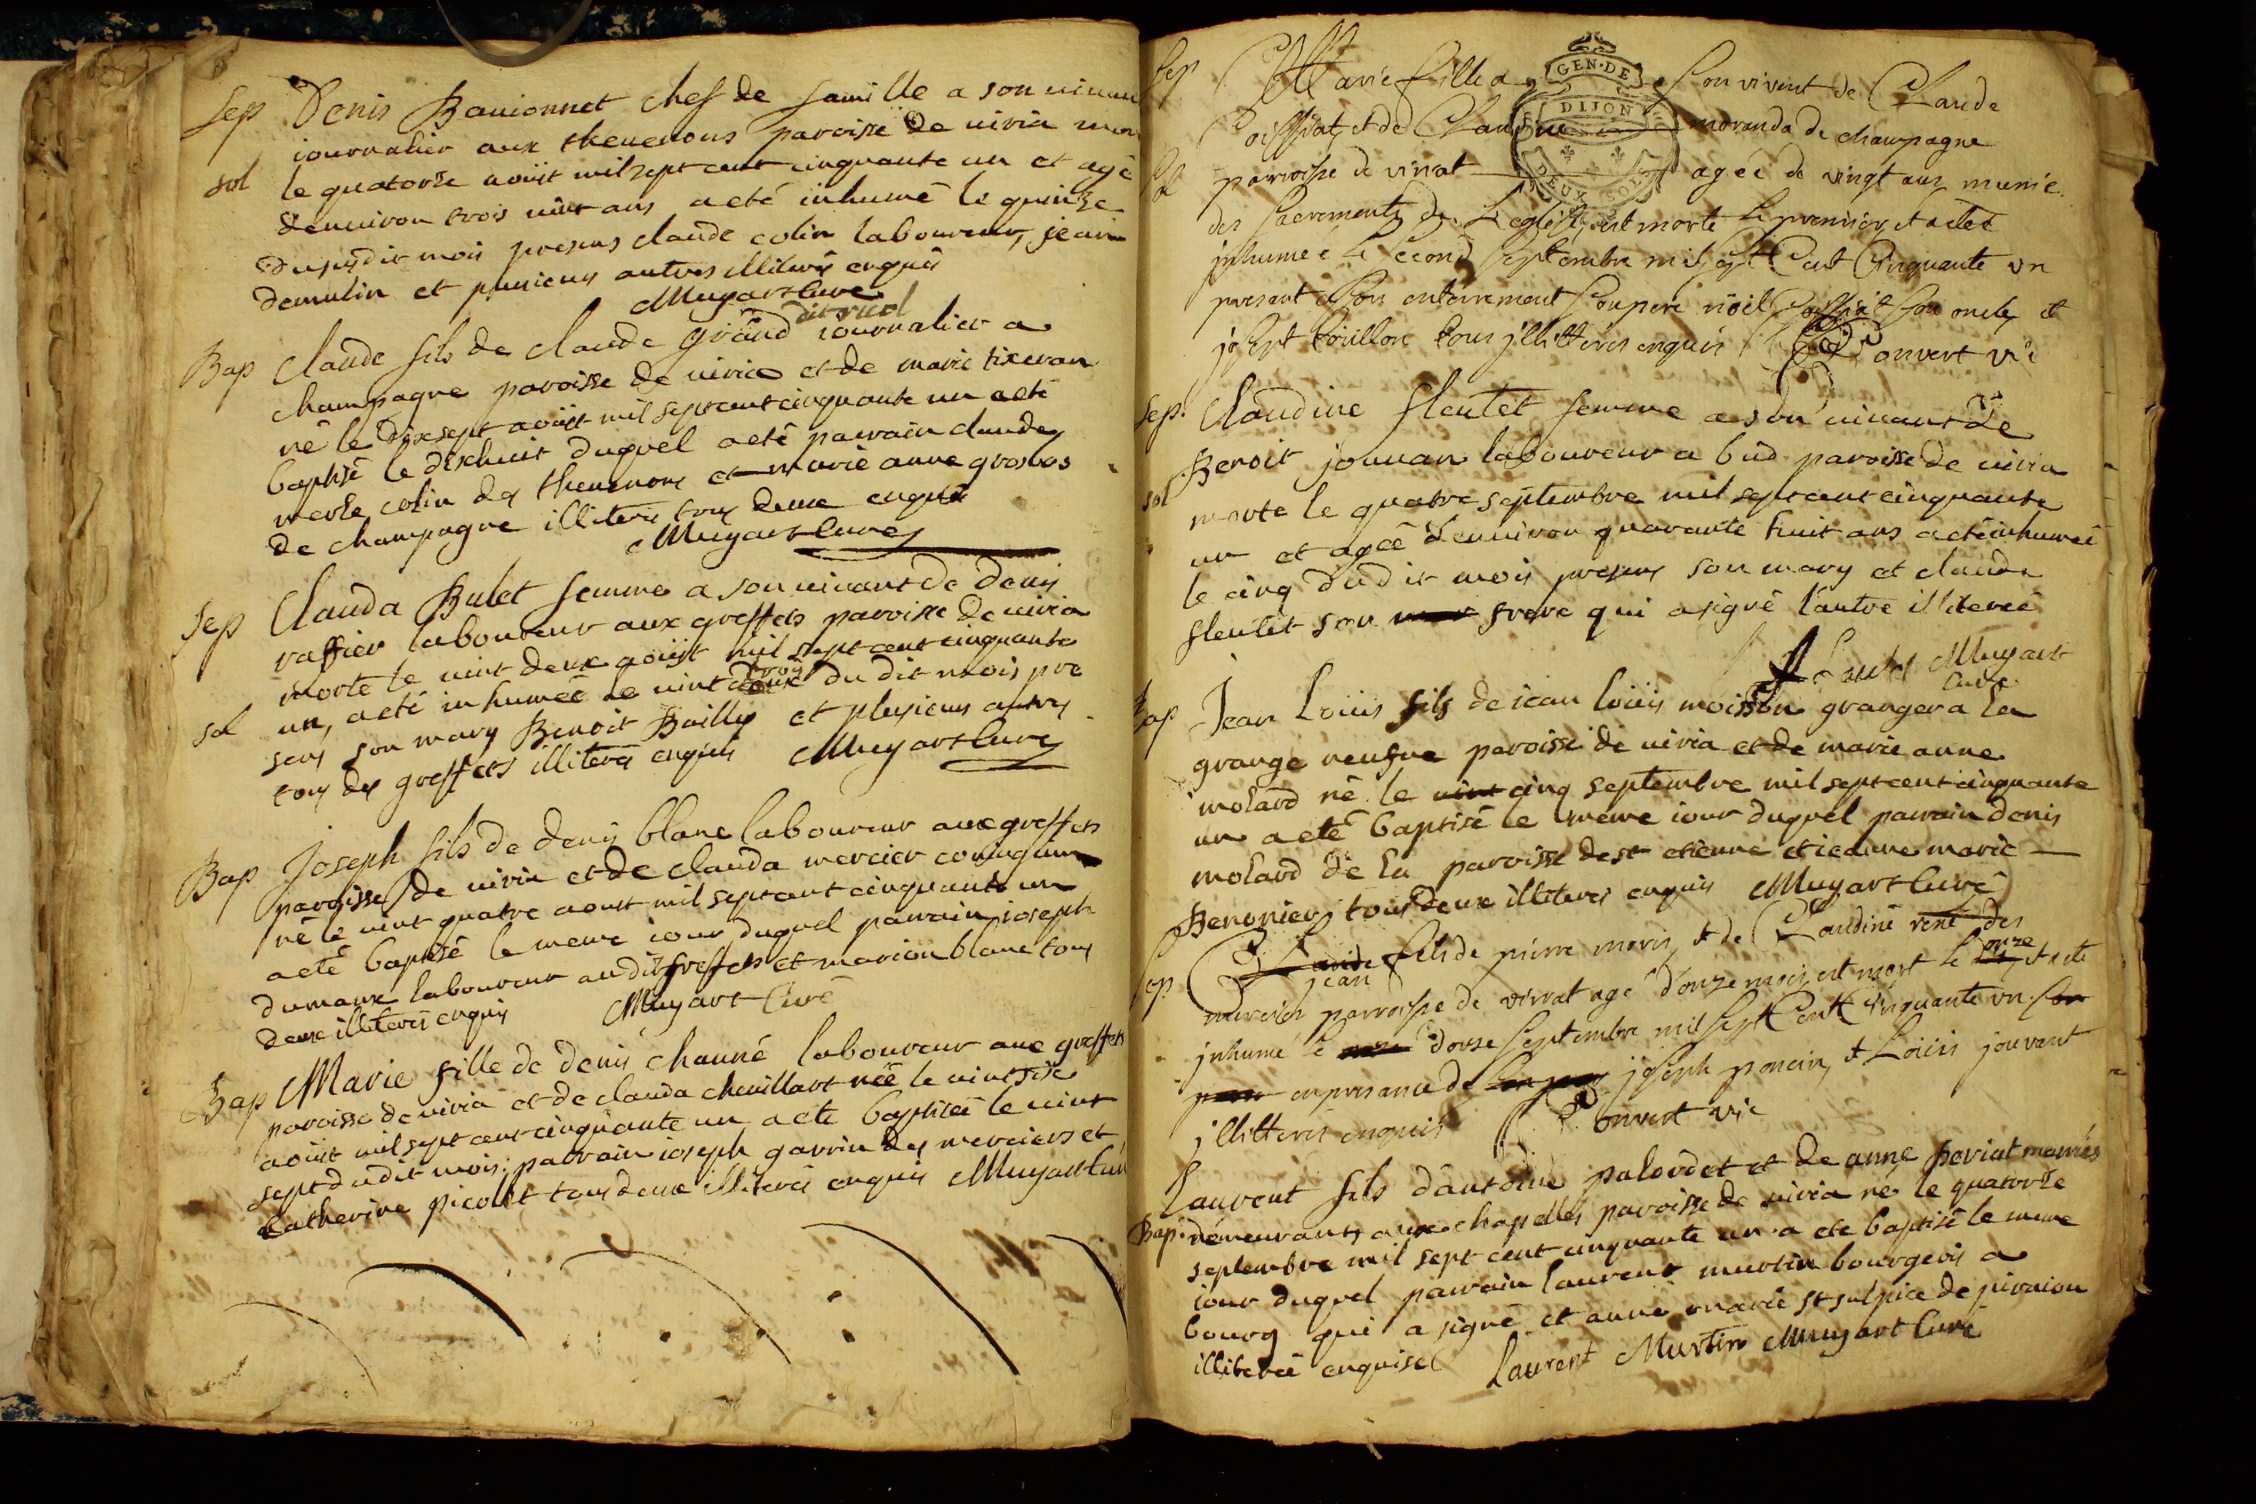 Sep Denis Bauionnet chef de famille a son uiuan
iournalier aux theuenons paroisse de uiria mor
sol le quatorse aoüst mil sept cent cinquante un et agé
denuiron trois uint ans a eté inhumé le quinse
dususdit mois presens claude colin laboureur, jean
demulin et plusieurs autres illiterés enquis
Muyart curé
dit
Bap Claude fils de claude grand iournalier a
champagne paroisse de uiria et de marie tixeran
né le dixsept aoüst mil sept cent cinquante un a eté
baptisé le dixhuit duquel a eté parrain claude
merle colin des theuenons et marie anne grosbos
de champagne illiterés tous deux enquis
Muyart curé
Sep Clauda Bulet femme a son uiuant de denis
raffier laboureur aux greffets paroisse de uiria
morte le uint deux aoüst mil sept cent cinquante
trois
sol un, a eté inhumeé le uint deux du dit mois pre
sens son mary Benoit Bailly et plusieurs autres
tous des greffets illiterés enquis Muyart curé
Bap Joseph fils de denis blanc laboureur aux greffets
paroisse de uiria et de clauda mercier coniugum
né le uint quatre aoust mil sept cent cinquante un
a eté baptisé le meme iour duquel parrain ioseph
dumaux laboureur audit greffets et marion blanc tous
deux illiterés enquis Muyart Curé
Bap Marie fille de denis channé laboureur aux greffets
paroisse de uiria et de clauda cheuillart née le uint six
aoüst mil sept cent cinquante un a eté baptiseé le uint
sept du dit mois; parrain ioseph garrin des merciers et
catherine picollet tous deux illiterés enquis Muyart Curé
Sep Marie fille a son vivent de Claude
GEN·DE
DIJON
DEUX SOLS
Poissiat et de Claudine moranda de champagne
sol parroisse de viriat ageé de vingt ans munie
des sacrements de L'eglise, est morte le premier et a eté
jnhumeé le second septembre mil sept Cent Cinquante vn
present a son enterrement son pere noël Poissiat son oncle et
joseph Pouillon tous jllitterés enquis Convert vic
Sep. Claudine fleutet femme a son uiuant de
Benoit jouuan laboureur a biid paroisse de uiria
sol morte le quatre septembre mil sept cent cinquante
un et ageé denuiron quarante huit ans a eté inhumeé
le cinq du dit mois presens son mary et claude
fleutet son frere qui a signé l'autre illitereé
Muyart
curé
Bap Jean Loüis fils de iean loüis moisson granger a la
grange neufue paroisse de uiria et de marie anne
molard né le uint cinq septembre mil sept cent cinquante
un a eté baptisé le meme iour duquel parrain denis
molard de la paroisse de st etienne et ieanne marie
Beronier tous deux illiterés enquis Muyart Curé
Sep Claude fils de pierre moris, et de Claudine rené des
jean onze
merciers parroisse de viriat agé d'onze mois est mort le dix, et a eté
jnhumé le douse septembre mil sept Cent Cinquante vn son
pere en presance de son pere joseph poncin, et Loüis jouvent
jllitterés enquis Convert vic
Laurent fils d'antoine palordet et de anne periat mariés
Bap. demeurants aux chapelles paroisse de uiria né le quatorse
septembre mil sept cent cinquante un a eté baptisé le meme
iour duquel parrain laurent martin bourgeois a
bourg qui a signé et anne marie st sulpice de piraiou
illitereé enquise Laurent Martin Muyart Curé